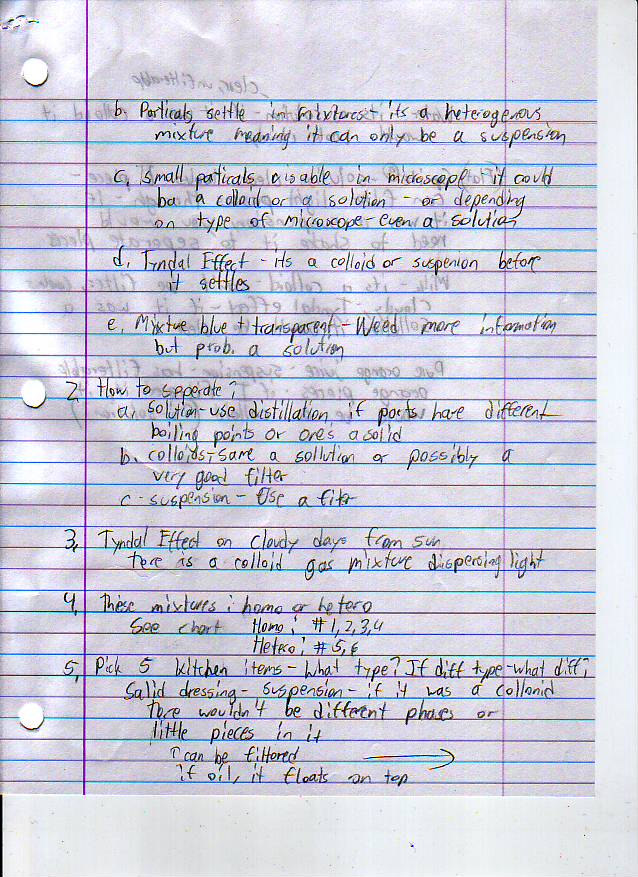 b. Particals settle in mixtures: its a heterogenous
mixture meaning it can only be a suspension
c. Small paticals visable in microscope it could
be a colloid or a solution - or depending
on type of microscope - even a solution
d. Tyndal Effect - its a colloid or suspenion before
it settles
e. Mixtue blue + transparent - Weed more information
but prob. a solution
2. How to seperate?
a. solution - use distillation if parts have different
boiling points or one's a solid
b. colloids - same a sollution or possibly a
very good filter
c - suspension - Use a filter
3. Tyndal Effect on cloudy days from sun
there is a colloid gas mixture dispersing light
4. These mixtures: homo or hetero
See chart Homo: #1,2,3,4
Hetero: #5,6
5. Pick 5 kitchen items - What type? If diff type - what diff?
Salid dressing - suspension - if it was a colloid
there wouldn't be different phases or
little pieces in it
↑ can be filtored →
if oil, it floats on top